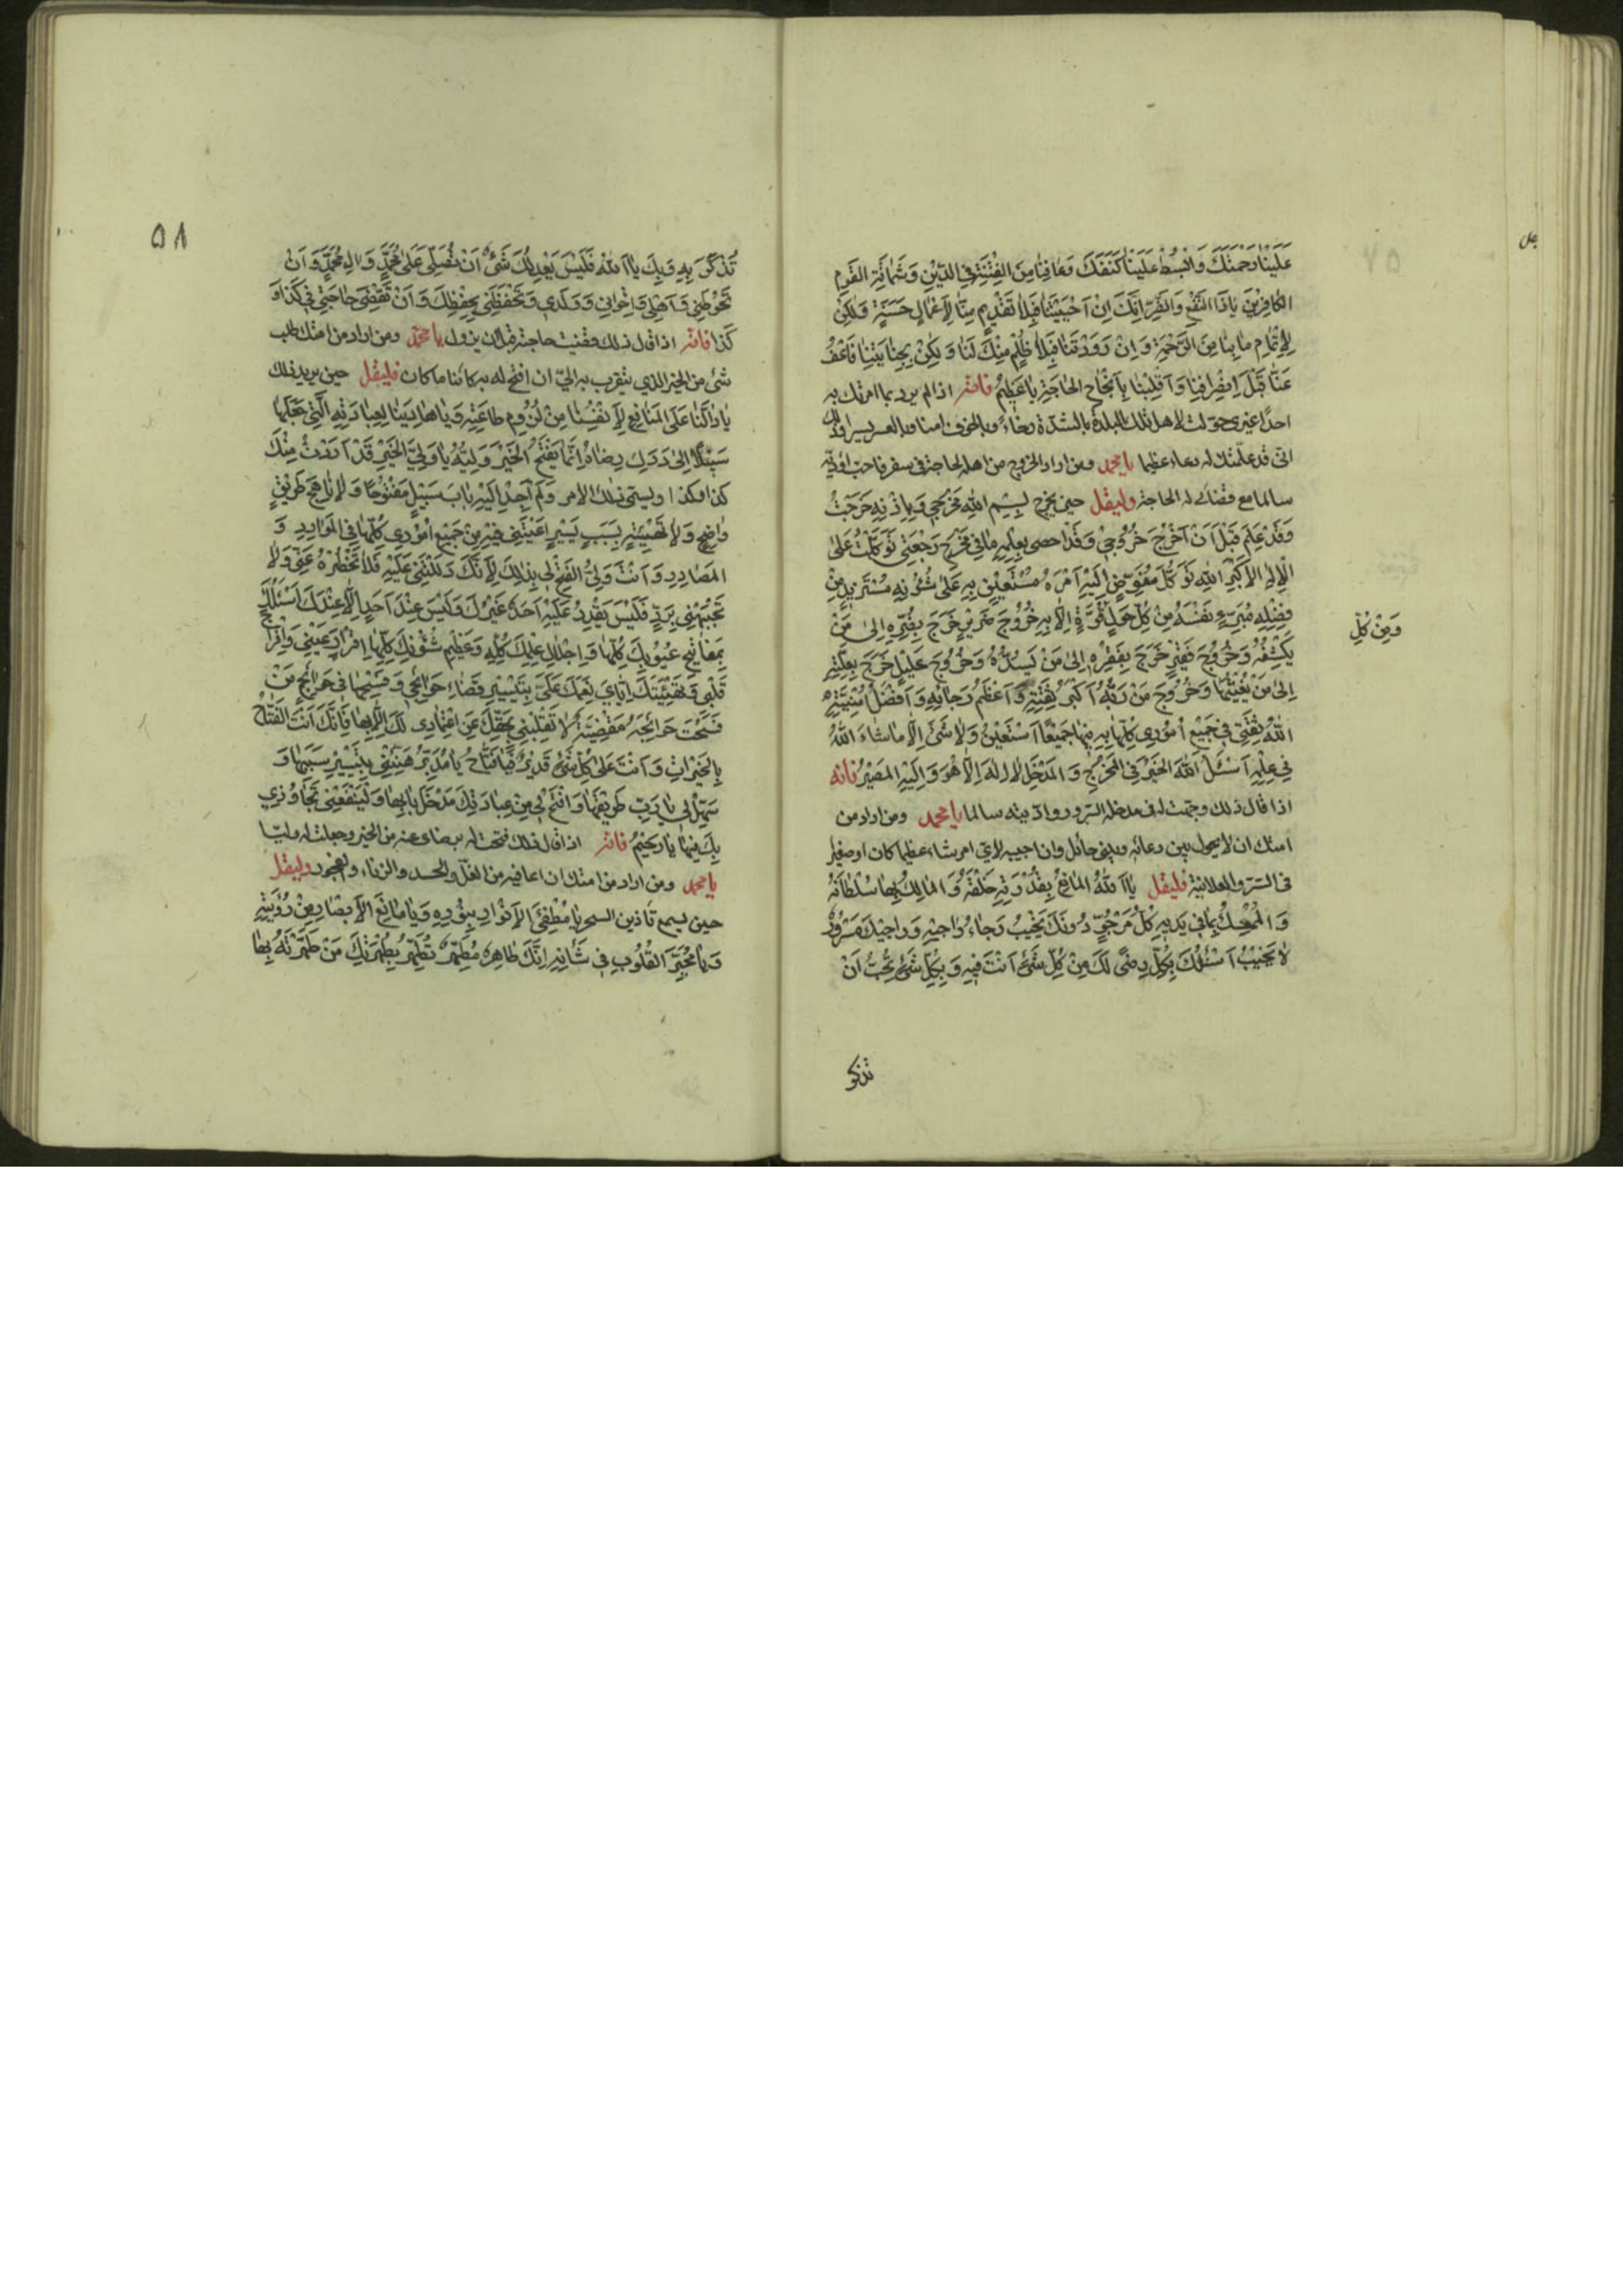 عَلَيْنَا رَحْمَتَكَ وَابْسُطْ عَلَيْنَا كَنَفَكَ وَعَافِنَا مِنَ الْفِتْنَةِ فِي الدِّيْنِ وَشَمَاتَةِ القَوْمِ
الكَافِرِيْنَ يَا ذَا النَّفْعِ وَالضُّرِّ اِنَّكَ اِنْ اَجَبْتَنَا فَبِلَا تَقْدِيمٍ مِنَّا لِاَعْمَالٍ حَسَنَةٍ وَلٰكِنْ
لِاِتْمَامِ مَا بِنَا مِنَ الرَّحْمَةِ وَاِنْ رَدَدْتَنَا فَبِلَا ظُلْمٍ مِنْكَ لَنَا وَلٰكِنْ بِجِنَايَتِنَا فَاعْفُ
عَنَّا قَبْلَ اِنْصِرَافِنَا وَاَقْلِبْنَا بِاِنْجَاحِ الحَاجَةِ يَا عَظِيْمُ فانه اذا لم يرد بما امرتك به
احدا غيرى حوّلت لاهل تلك البلدة بالشدّة رخاء وبالخوف امنا وبالعسر يسرا وذلك
انّى قد علّمتك له دعاء عظيما يا محمد ومن اراد الخروج من اهله لحاجة فى سفر فاحب ان اؤديه
سالما مع قضائى له الحاجة وليقل حين يخرج بِسْمِ اللهِ مَخْرَجِي وَبِاِذْنِهِ خَرَجْتُ
وَقَدْ عَلِمَ قَبْلَ اَنْ اَخْرُجَ خُرُوْجِيْ وَقَدْ احصى بِعِلْمِهِ مَا فِي مَخْرَجِي وَرَجْعَتِيْ تَوَكَّلْتُ عَلَى
الْاِلٰهِ الْاَكْبَرِ اللهِ تَوَكُّلَ مُفَوِّضٍ اِلَيْهِ اَمْرَهُ مُسْتَعِيْنٍ بِهِ عَلَى شُئُوْنِهِ مُسْتَزِيْدٍ مِنْ
فَضْلِهِ مُبَرِّءٍ نَفْسَهُ مِنْ كُلِّ حَوْلٍ وَمِنْ كُلِّ قُوَّةٍ اِلَّا بِهِ خُرُوْجَ ضَرِيْرٍ خَرَجَ بِضُرِّهِ اِلَى مَنْ
يَكْشِفُهُ وَخُرُوْجَ فَقِيْرٍ خَرَجَ بِفَقْرِهِ اِلَى مَنْ يَسُدُّهُ وَخُرُوْجَ عَلِيْلٍ خَرَجَ بِعِلَّتِهِ
اِلَى مَنْ يُغِيْثُهَا وَخُرُوْجَ مَنْ رَبُّهُ اَكْبَرُ ثِقَتِهِ وَاَعْظَمُ رَجَائِهِ وَاَفْضَلُ اُمْنِيَّتِهِ
اللهُ ثِقَتِيْ فِي جَمِيْعِ اُمُوْرِي كُلِّهَا بِهِ فِيْهَا جَمِيْعًا اَسْتَعِيْنُ وَلَا شَيْءَ اِلَّا مَا شَاءَ اللهُ
فِي عِلْمِهِ اَسْئَلُ اللهَ الخَيْرَ فِي المَخْرَجِ وَالمَدْخَلِ لَا اِلٰهَ اِلَّا هُوَ وَاِلَيْهِ المَصِيْرُ فانه
اذا قال ذلك وجّهت له فى مدخله السرور وادّيته سالما يا محمد ومن اراد من
امتك ان لا يحول بين دعائه وبينى حائل وان اجيبه لاى امر شاء عظيما كان او صغيرا
فى السرّ والعلانية فليقل يَا اَللهُ المَانِعُ بِقُدْرَتِهِ خَلْقَهُ وَالمَالِكُ بِهَا سُلْطَانَهُ
وَالمُمْسِكُ بِمَا فِي يَدَيْهِ كُلُّ مَرْجُوٍّ دُوْنَكَ يَخِيْبُ رَجَاءُ رَاجِيْهِ وَرَاجِيْكَ مَسْرُوْرٌ
لَا يَخِيْبُ اَسْئَلُكَ بِكُلِّ رِضًى لَكَ مِنْ كُلِّ شَيْءٍ اَنْتَ فِيْهِ وَبِكُلِّ شَيْءٍ تُحِبُّ اَنْ
وَمِنْ كُلِّ
تذكر
٥٨
تُذْكَرَ بِهِ وَبِكَ يَا اَللهُ فَلَيْسَ يَعْدِلُكَ شَيْءٌ اَنْ تُصَلِّيَ عَلَى مُحَمَّدٍ وَالِ مُحَمَّدٍ وَاَنْ
تَحُوْطَنِي وَاَهْلِي وَاِخْوَانِي وَوَلَدِي وَتَحْفَظَنِي بِحِفْظِكَ وَاَنْ تَقْضِيَ حَاجَتِي فِي كَذَا وَ
كَذَا فانه اذا قال ذلك قضيت حاجته قبل ان يزول يا محمد ومن اراد من امتك طلب
شئ من الخير الذي يتقرب به الىّ ان افتح له به كائنا ما كان فليقل حين يريد ذلك
يَا دَالَّنَا عَلَى المَنَافِعِ لِاَنْفُسِنَا مِنْ لُزُوْمِ طَاعَتِهِ وَيَا هَادِيَنَا لِعِبَادَتِهِ الَّتِي جَعَلَهَا
سَبِيْلًا اِلَى دَرَكِ رِضَاهُ اِنَّمَا يَفْتَحُ الخَيْرَ وَلِيُّهُ يَا وَلِيَّ الخَيْرِ قَدْ اَرَدْتُ مِنْكَ
كذا وكذا ويسمى ذلك الامر وَلَمْ اَجِدْ اِلَيْهِ بَابَ سَبِيْلٍ مَفْتُوْحًا وَلَا نَاهِجَ طَرِيْقٍ
وَاضِحٍ وَلَا تَهْيِئَةَ سَبَبٍ يَسِيْرٍ اَعْيَتْنِي فِيْهِ جَمِيْعُ اُمُوْرِي كُلِّهَا فِي المَوَارِدِ وَ
المَصَادِرِ وَاَنْتَ وَلِيُّ الفَتْحِ لِي بِذٰلِكَ لِاَنَّكَ دَلَلْتَنِيْ عَلَيْهِ فَلَا تَحْظُرْهُ عَنِّيْ وَلَا
تَجْبَهْنِي بِرَدٍّ فَلَيْسَ يَقْدِرُ عَلَيْهِ اَحَدٌ غَيْرُكَ وَلَيْسَ عِنْدَ اَحَدٍ اِلَّا عِنْدَكَ اَسْئَلُكَ
بِمَفَاتِيْحِ غُيُوْبِكَ كُلِّهَا وَاِجْلَالِ عِلْمِكَ كُلِّهِ وَعَظِيْمِ شُئُوْنِكَ كُلِّهَا اِقْرَارَ عَيْنِي وَاِفْرَاحَ
قَلْبِي وَتَهْنِئَتَكَ اِيَّايَ نِعَمَكَ عَلَيَّ بِتَيْسِيْرِ قَضَاءِ حَوَائِجِي وَنَشْجِهَا فِي حَوَائِجِ مَنْ
نَشَجْتَ حَوَائِجَهُ مَقْضِيَّةً لَا تَقْلِبْنِي بِحَقِّكَ عَنِ اعْتِمَادِي لَكَ اِلَّا بِهَا فَاِنَّكَ اَنْتَ الفَتَّاحُ
بِالخَيْرَاتِ وَاَنْتَ عَلَى كُلِّ شَيْءٍ قَدِيْرٌ فَيَا فَتَّاحُ يَا مُدَبِّرُ هَيِّئْ لِي تَيْسِيْرَ سَبَبِهَا وَ
سَهِّلْ لِي يَا رَبِّ طَرِيْقَهَا وَافْتَحْ لِي مِنْ عِبَادَتِكَ مَدْخَلَ بَابِهَا وَلْيَنْفَعْنِي تَجَاوُزِي
بِكَ فِيْهَا يَا رَحِيْمُ فانه اذا قال ذلك فتحت له برضاى عنه من الخير وجعلته له وليّا
يا محمد ومن اراد من امتك ان اعافيه من الغلّ والحسد والرياء والفجور وليقل
حين يسمع تأذين السحر يَا مُطْفِئَ الاَنْوَارِ بِنُوْرِهِ وَيَا مَانِعَ الاَبْصَارِ مِنْ رُؤْيَتِهِ
وَيَا مُحَيِّرَ القُلُوْبِ فِي شَأْنِهِ اِنَّكَ طَاهِرٌ مُطَهِّرٌ تُطَهِّرُ بِطُهْرَتِكَ مَنْ طَهَّرْتَهُ بِهَا